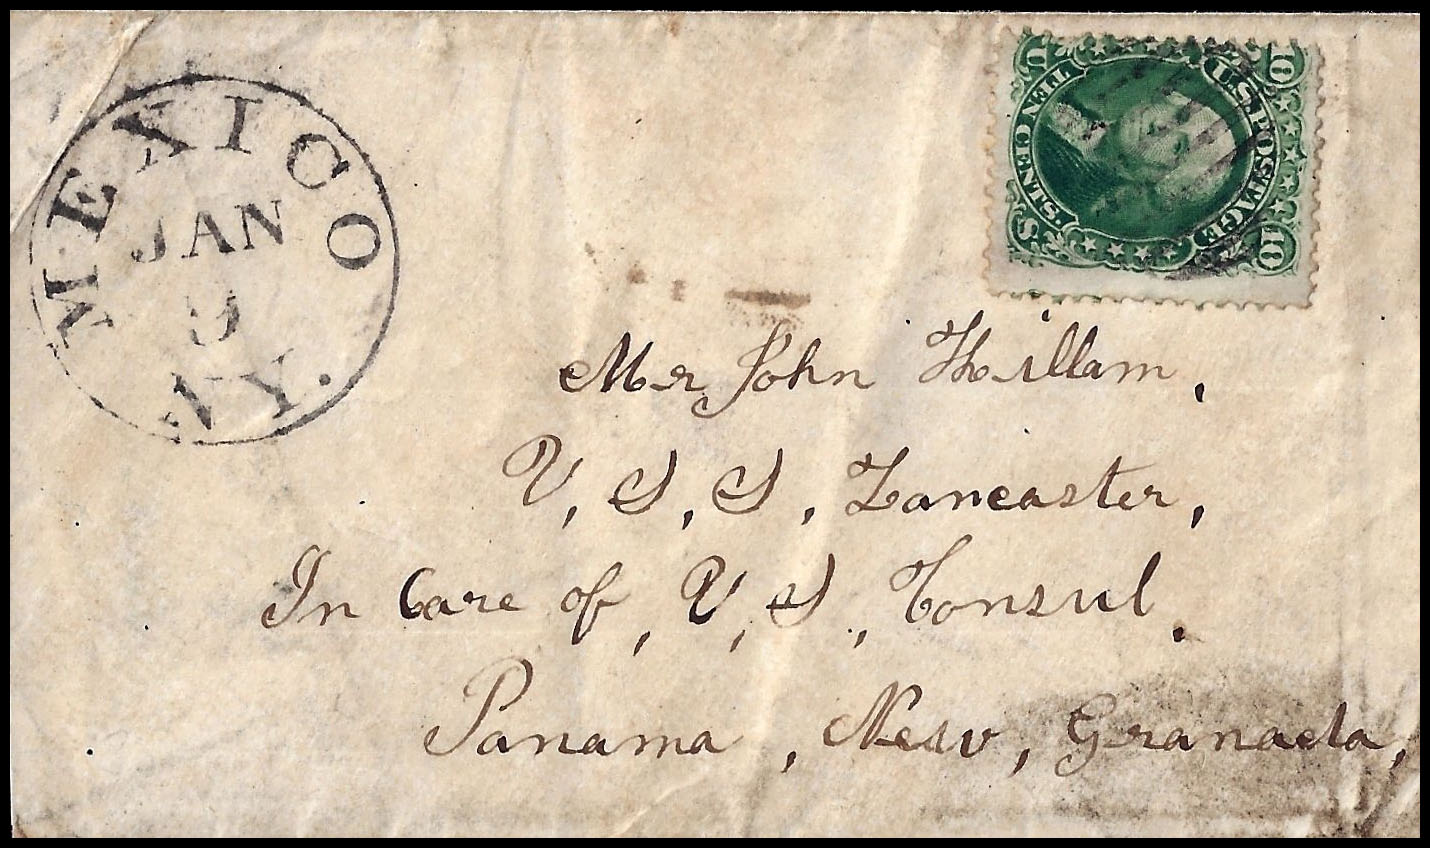 MEXICO
JAN
9
NY.
U S POSTAGE
10 10
TEN CENTS
U S
Mr John Killam,
U, S, S, Lancaster,
In Care of, U, S, Consul,
Panama, New, Granada,